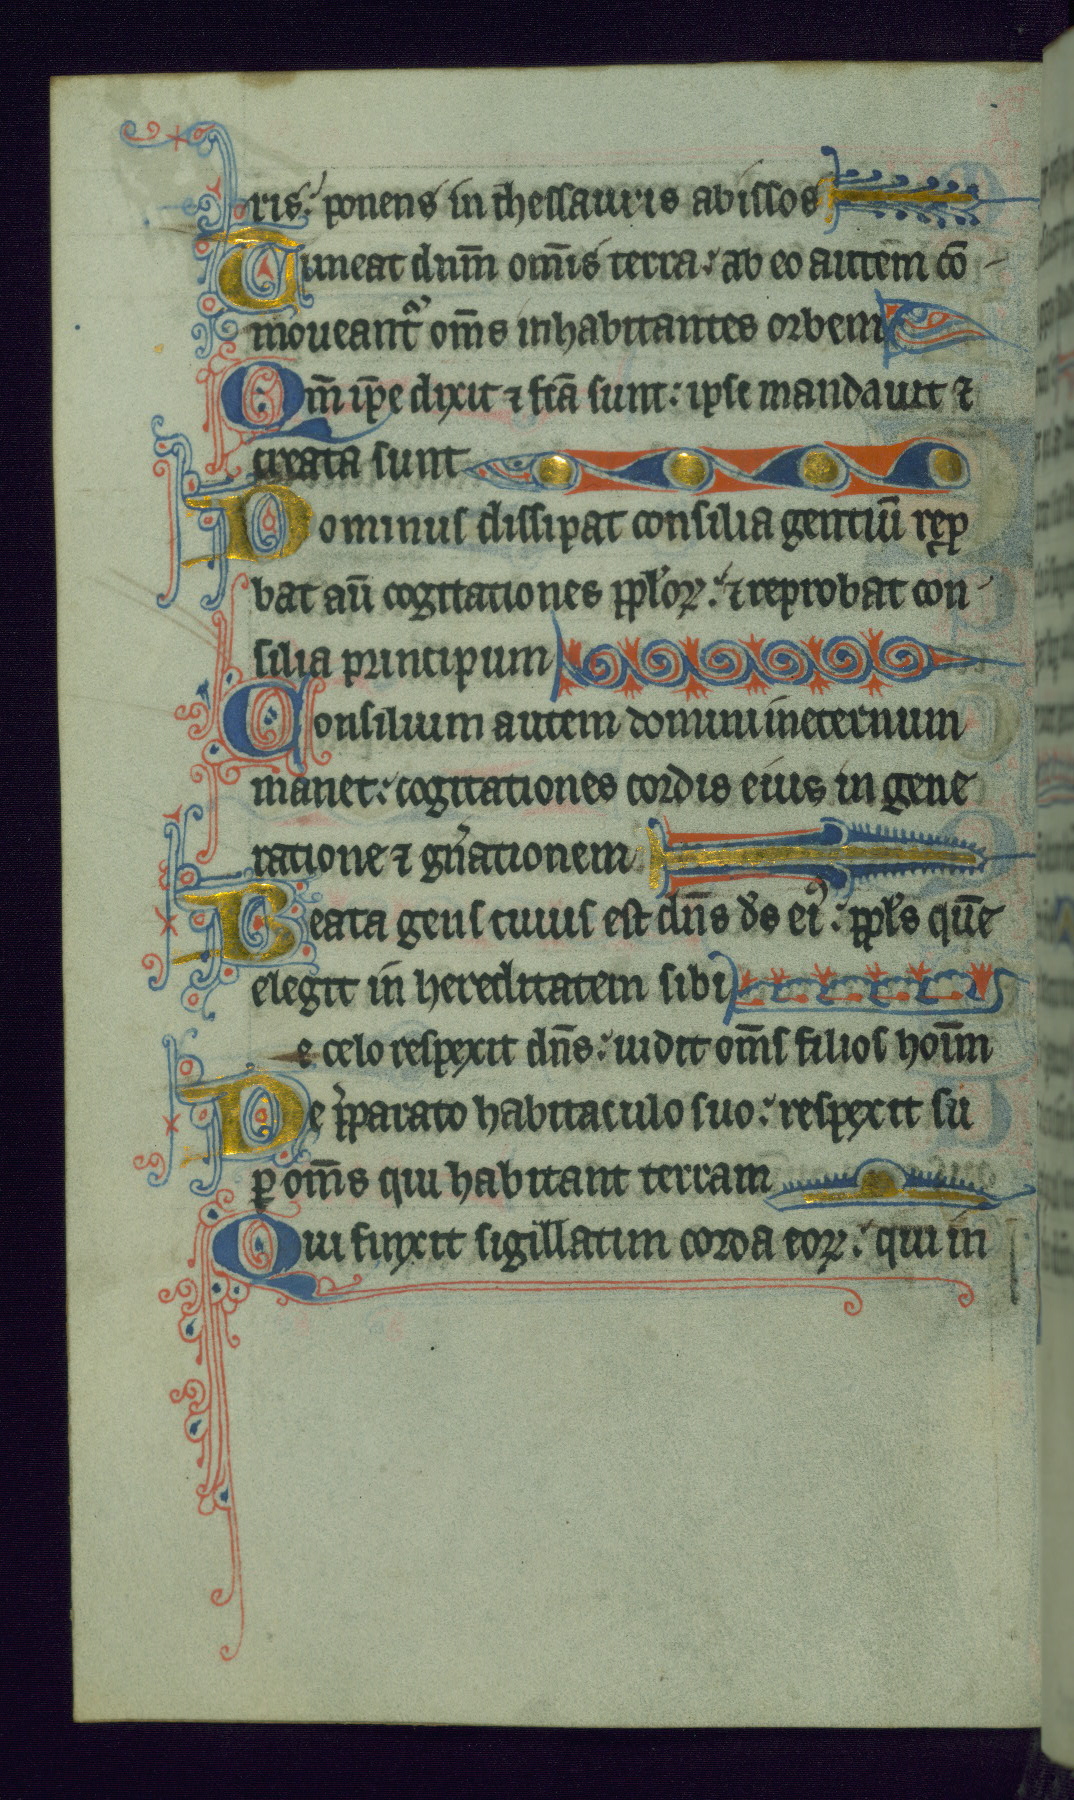 ris: ponens in thessauris abissos
Timeat dnm̅ om̅is terra: ab eo autem co̅
moueantr̃ om̅s inhabitantes orbem
Qm̅ ip̅e dixit ⁊ fc̅a sunt: ipse mandauit ⁊
creata sunt
Dominus dissipat consilia gentiu̅ rep̱
bat au̅ cogitationes pp̱l̓oꝝ: ⁊ reprobat con
silia principum
Consilium autem domini ineternum
manet: cogitationes cordis eius in gene
ratione ⁊ gn̓ationem
Beata gens cuius est dn̅s d̓s eiꝰ: pp̱l̓s que̅
elegit in hereditatem sibi
e celo respexit dn̅s: uidit om̅s filios hoi̅m
De p̓parato habitaculo suo: respexit su
ꝑ om̅s qui habitant terram
Qui finxit sigillatim corda eoꝝ: qui in